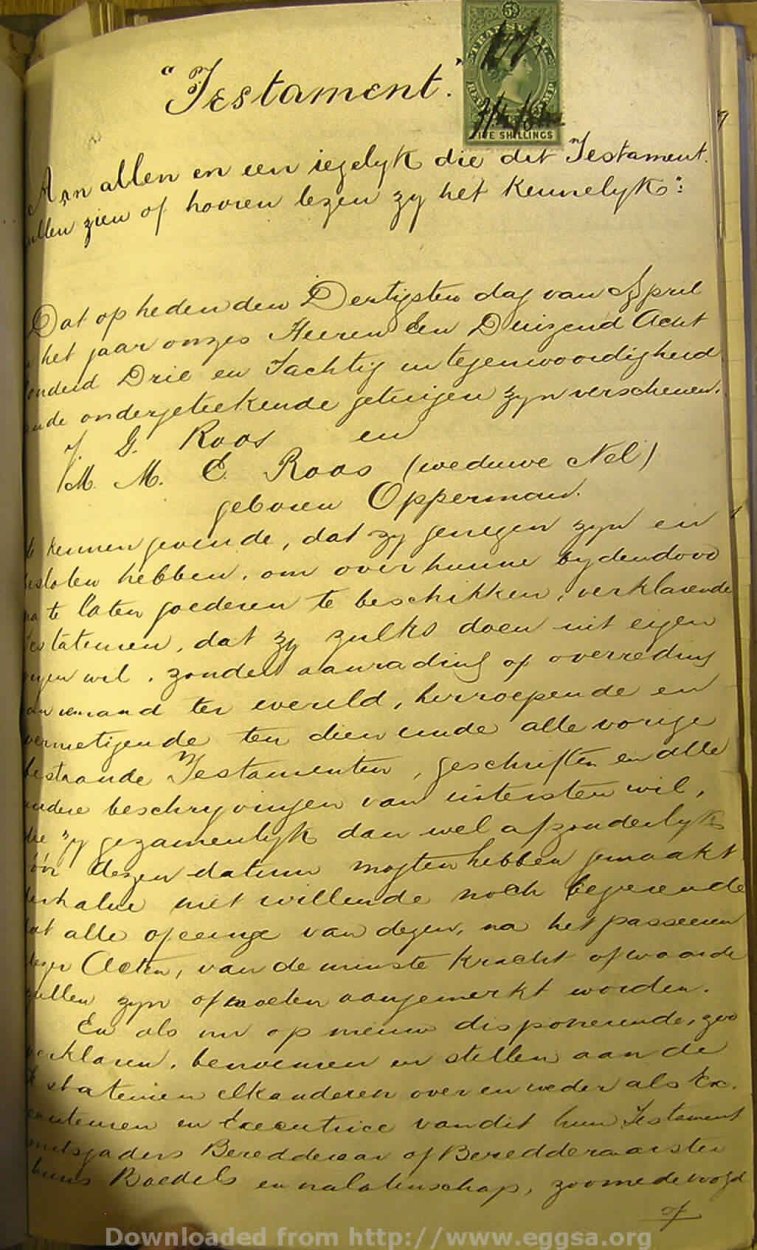 "Testament."
TRANSVAAL
5/
FIVE SHILLINGS
Aan allen en een iegelyk die dit Testament
zullen zien of hooren lezen zy het kennelyk:
Dat op heden den Dertigsten dag van April
het jaar onzes Heeren Een Duizend Acht
onderd Drie en Tachtig in tegenwoordigheid
onde ondergeteekende getuigen zyn verschenen.
J. G. Roos en
M. M. E. Roos (weduwe Nel)
geboren Opperman.
te kennen gevende, dat zy genegen zyn en
besloten hebben, om over hunne by den dood
na te laten goederen te beschikken, verklarende
Testateuren, dat zy zulks doen uit eigen
vryen wil, zonder aanrading of overreding
van iemand ter wereld, herroepende en
vernietigende ten dien einde alle vorige
bestaande Testamenten, geschriften en alle
andere beschryvingen van uitersten wil,
die zy gezamenlyk dan wel afzonderlyk
vóór dezen datum mogten hebben gemaakt
derhalve niet willende noch begeerende
dat alle of eenige van dezen, na het passeeren
dezer Acten, van de minste kracht of waarde
zullen zyn of moeten aangemerkt worden.
En als nu op nieuw disponeerende, zoo
verklaren, benoemen en stellen aan de
Testateuren elkanderen over en weder als Ex-
ecuteuren en Executrice van dit hun Testament
mitsgaders Beredderaar of Beredderaarster
huns Boedels en nalatenschap, zoomede voogd
of
Downloaded from http://www.eggsa.org